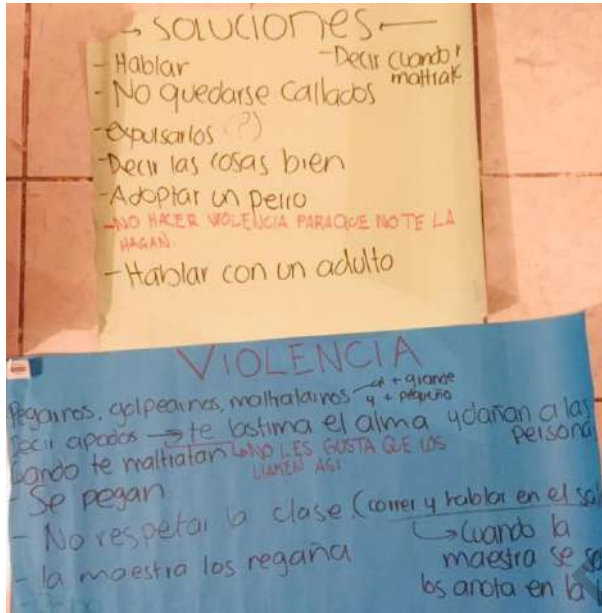 → SOLUCIONES ←
- Hablar
- Decir cuando
maltrat
- No quedarse callados
- expulsarlos (?)
- Decir las cosas bien
- Adoptar un perro
- NO HACER VIOLENCIA PARA QUE NO TE LA
HAGAN.
- Hablar con un adulto
VIOLENCIA
Pegarnos, golpearnos, maltratarnos → + grande
y + pequeño
Decir apodos → te lastima el alma y dañan a las
persona
Cuando te maltratan NO LES GUSTA QUE LOS
LLAMEN ASI
- Se pegan
- No respetar la clase (correr y hablar en el sal
↳ Cuando la
- la maestra los regaña
maestra se sa
los anota en la